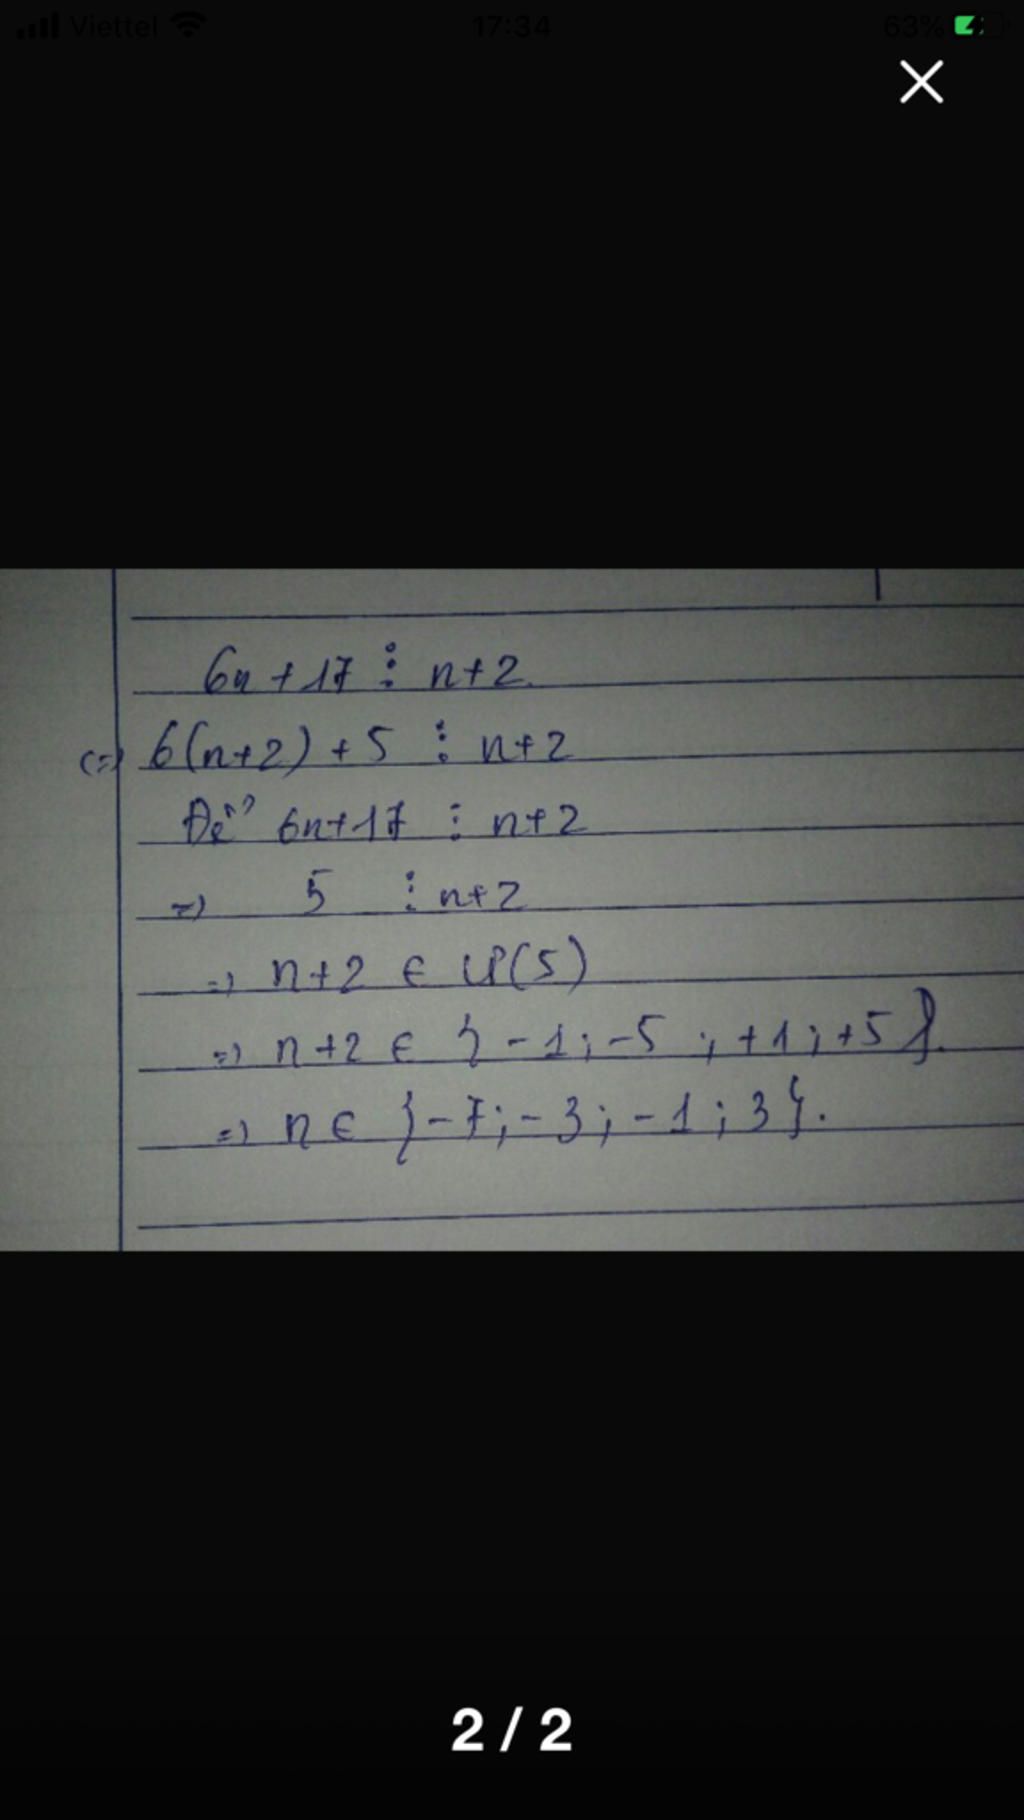 Viettel 17:34 63%
6n + 17 ⋮ n + 2.
(=) 6(n+2) + 5 ⋮ n+2
Để 6n+17 ⋮ n+2
=) 5 ⋮ n+2
=) n+2 ∈ Ư(5)
=) n+2 ∈ {-1; -5 ; +1; +5}.
=) n ∈ {-7; -3; -1; 3}.
2 / 2